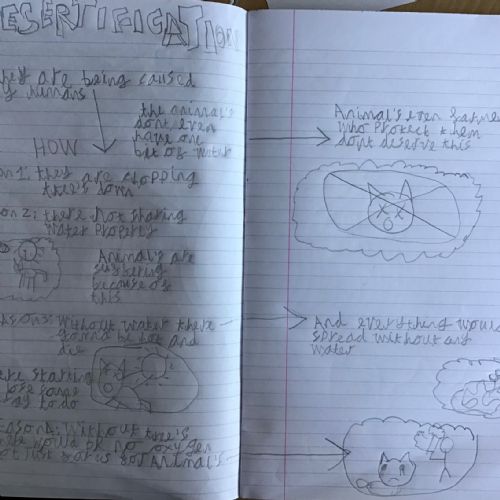 ESERTIFICATION
they are being caused
by humans
the animal's
dont even
have one
bit of water
HOW
on 1: they are chopping
tree's down
on 2: there not sharing
water properly
Animal's are
suffering
because of
this
on3: without water there
gonna be hot and
die
are starting
lose some
to do
eason4: without tree's
would be no oxygen
not just for us but Animal's
Animal's even farme
who protect them
dont deserve this
And everything would
spread without any
water